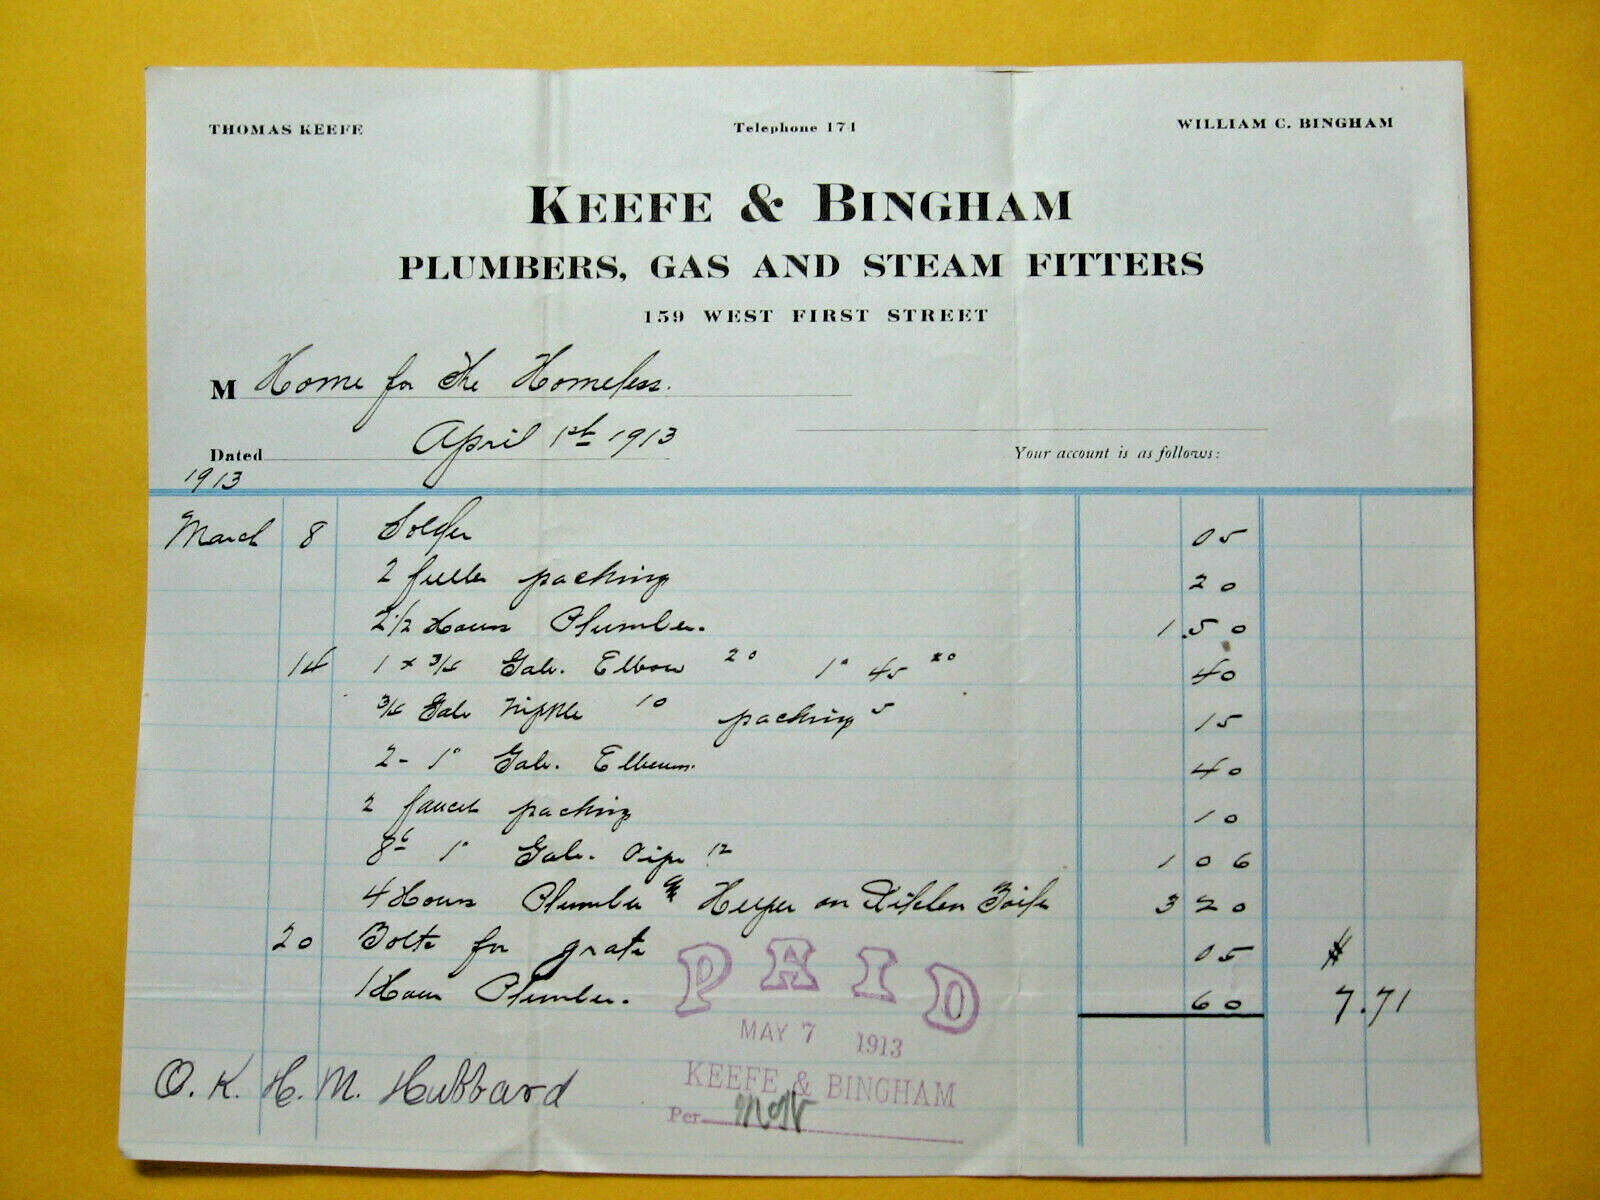 THOMAS KEEFE Telephone 171 WILLIAM C. BINGHAM
KEEFE & BINGHAM
PLUMBERS, GAS AND STEAM FITTERS
159 WEST FIRST STREET
M Home for the Homeless.
Dated April 1st 1913 Your account is as follows:
1913
March 8 Solder 05
2 fuller packing 20
2 1/2 Hours Plumber. 1.50
14 1 x 3/4 Galv. Elbow 20 1" 45 20 40
3/4 Galv Nipple 10 packing 5 15
2 - 1" Galv. Elbows. 40
2 faucet packing 10
8 6 1" Galv. Pipe 12 1 06
4 Hours Plumber & Helper on Kitchen Boiler 3 20
20 Bolts for grate 05 $
1 Hour Plumber. 60 7.71
PAID
MAY 7 1913
KEEFE & BINGHAM
Per
O. K. H. M. Hubbard